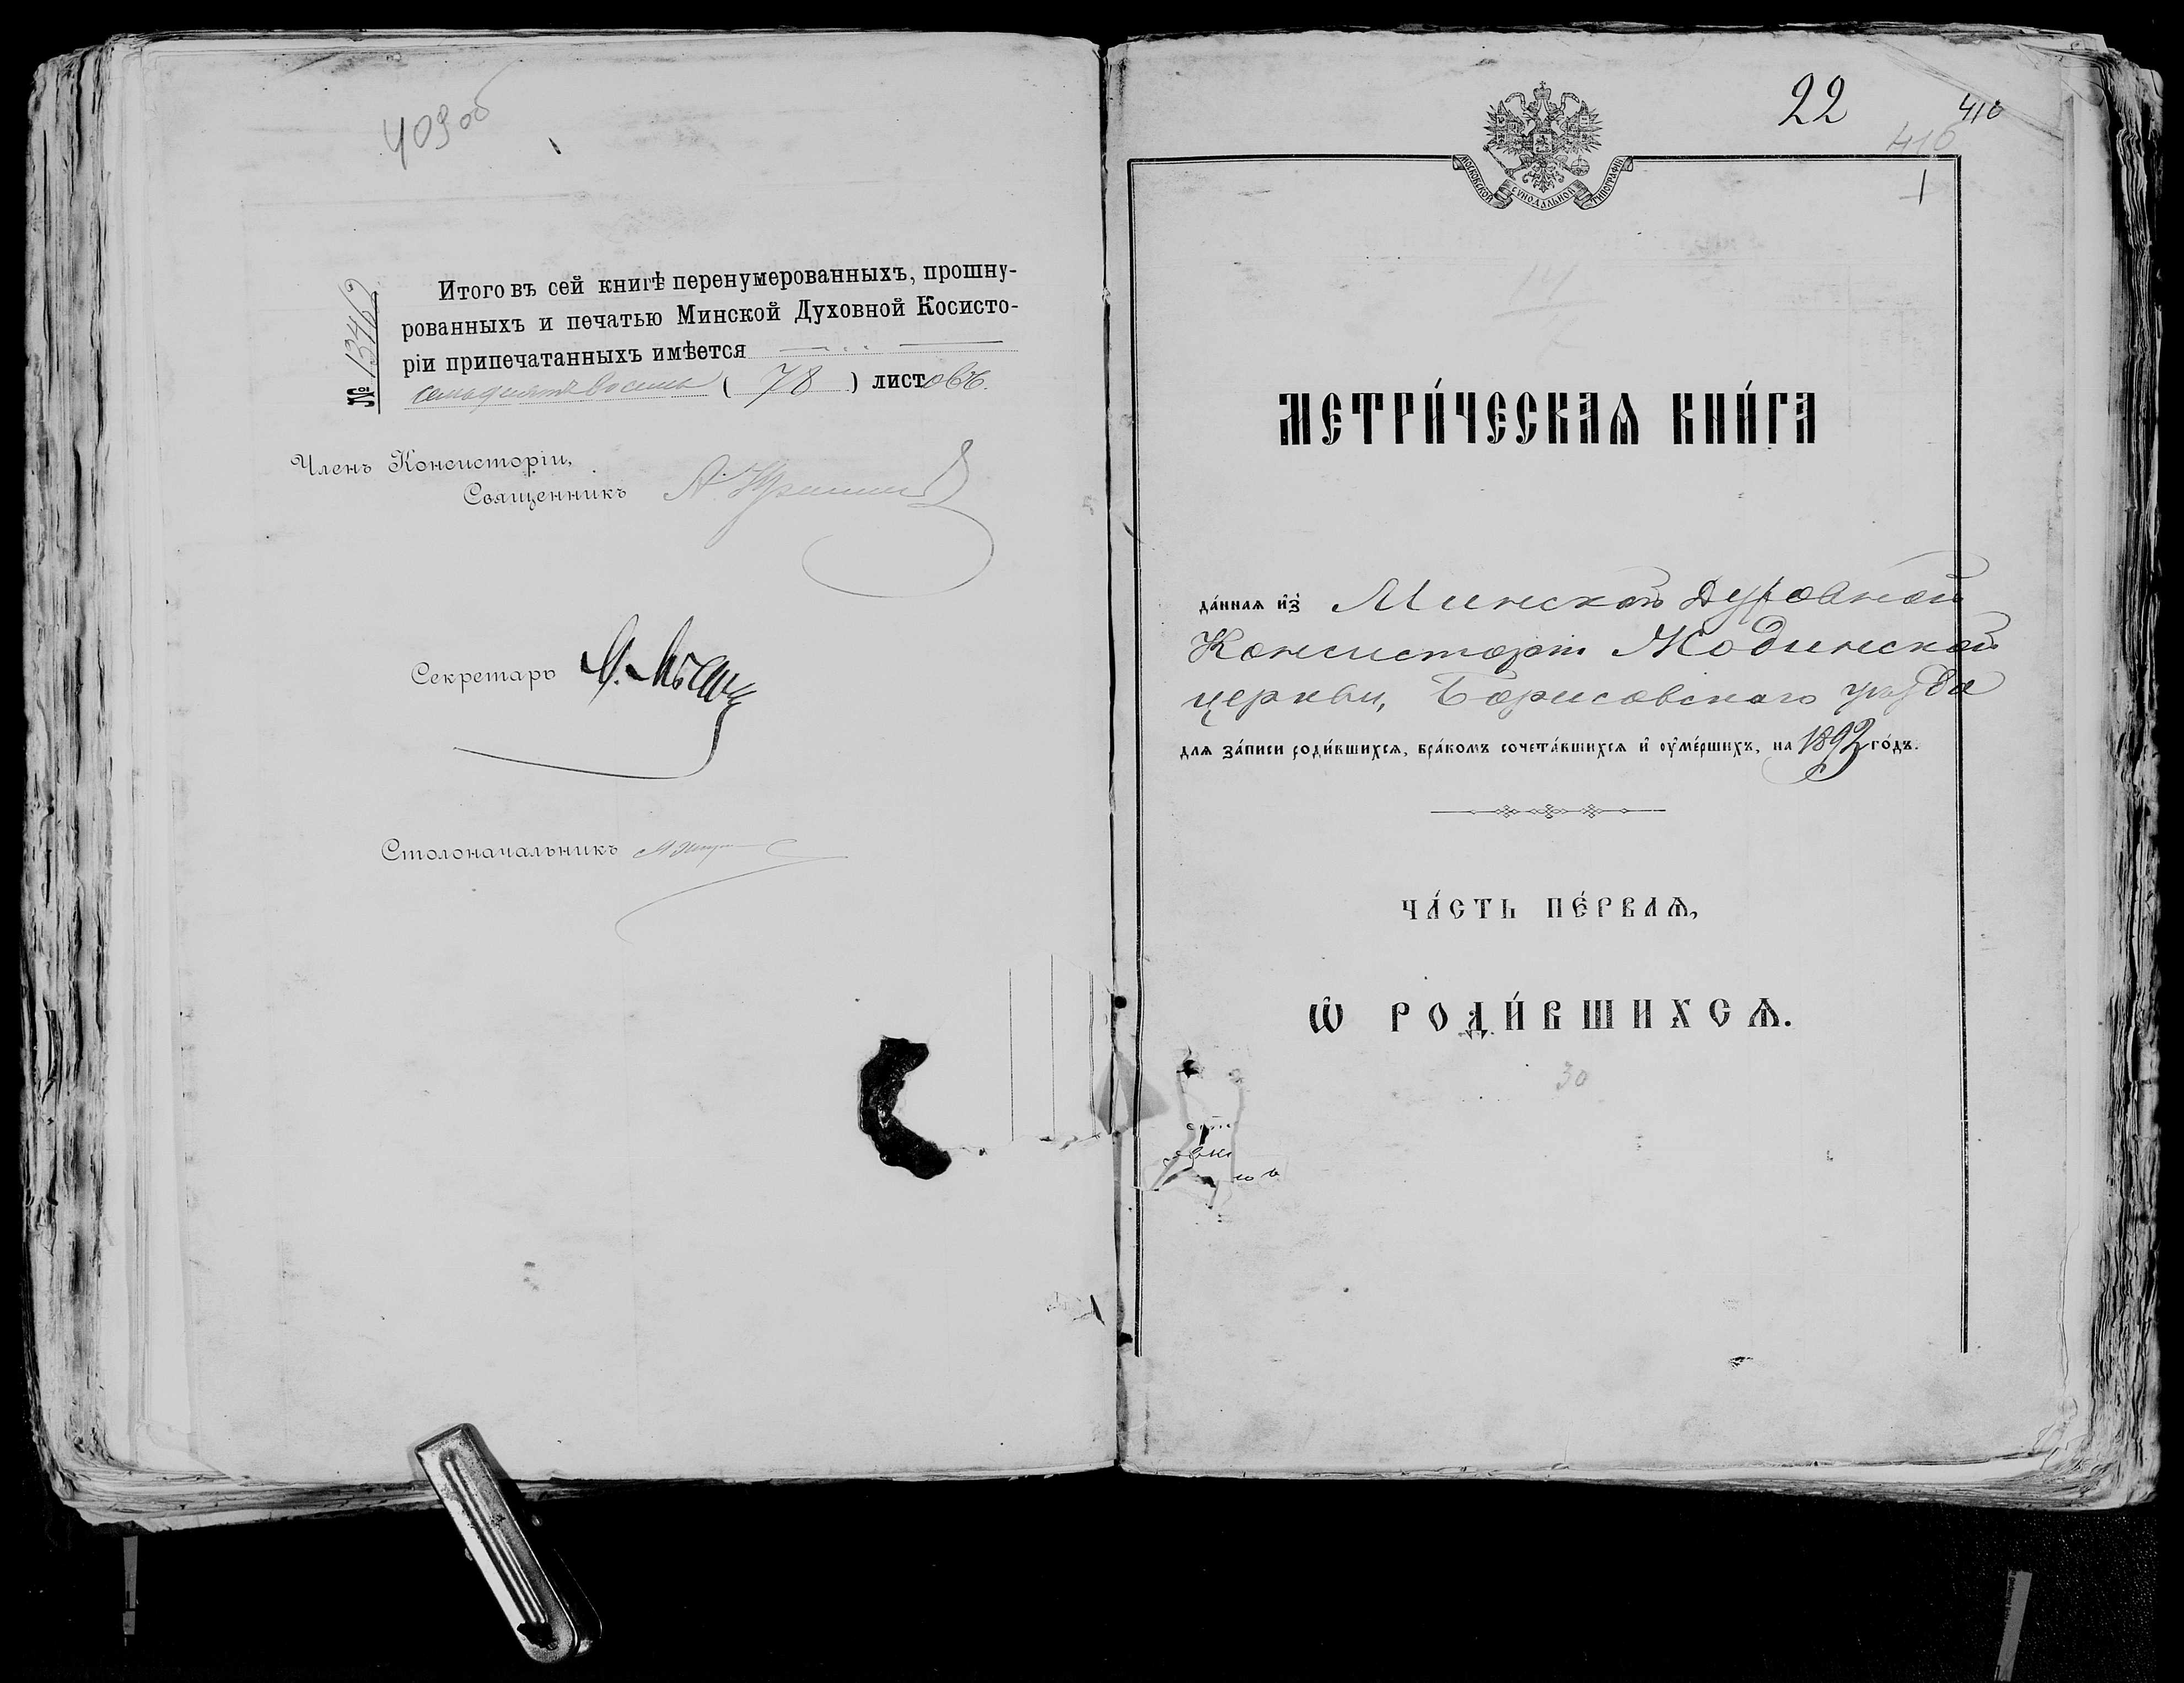 409 об
№ 13462
Итого въ сей книгѣ перенумерованныхъ, прошну-
рованныхъ и печатью Минской Духовной Косисто-
ріи припечатанныхъ имѣется
семьдесятъ восемь ( 78 ) листовъ.
Членъ Консисторіи,
Священникъ А.
Секретарь
Столоначальникъ
22
410
410
1
МОСКОВСКОЙ СѴНОДАЛЬНОЙ ТИПОГРАФІИ
14
МЕТРИ́ЧЕСКАѦ КНИ́ГА
да́нная и҆з̾ Минской Духовной
Консисторіи Жодинской
церкви, Борисовскаго уѣзда
для за́писи роди́вшихся, бра́комъ сочета́вшихся и҆ оу҆ме́ршихъ, на 1892 го́дъ.
ЧА́СТЬ ПЕ́РВАѦ,
Ѡ҆ РОДИ́ВШИХСѦ.
30